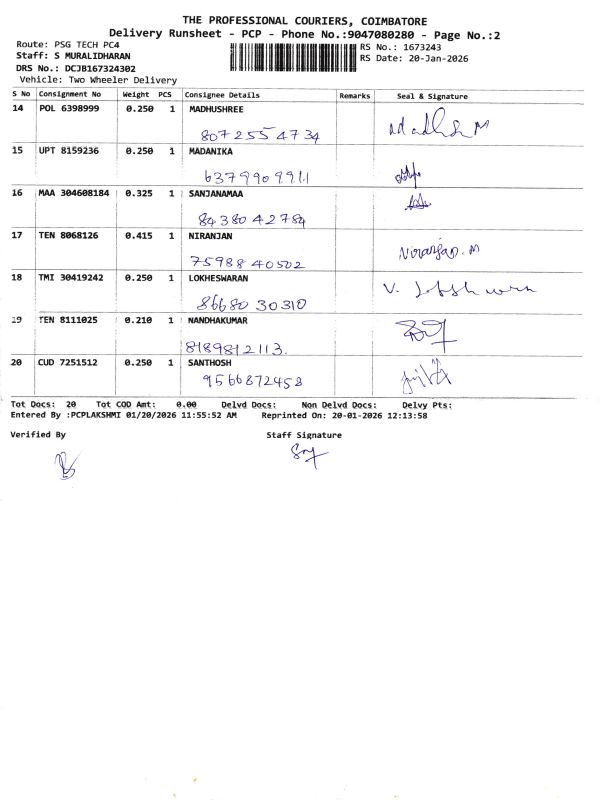 THE PROFESSIONAL COURIERS, COIMBATORE
Delivery Runsheet - PCP - Phone No.:9047080280 - Page No.:2
Route: PSG TECH PC4 RS No.: 1673243
Staff: S MURALIDHARAN RS Date: 20-Jan-2026
DRS No.: DCJB167324302
Vehicle: Two Wheeler Delivery
S No Consignment No Weight PCS Consignee Details Remarks Seal & Signature
14 POL 6398999 0.250 1 MADHUSHREE
8072554734 Madhu M
15 UPT 8159236 0.250 1 MADANIKA
6379909911
16 MAA 304608184 0.325 1 SANJANAMAA
8438042784
17 TEN 8068126 0.415 1 NIRANJAN
7598840502 Niranjan. M
18 TMI 30419242 0.250 1 LOKHESWARAN
8668030310 V.
19 TEN 8111025 0.210 1 NANDHAKUMAR
8189812113.
20 CUD 7251512 0.250 1 SANTHOSH
9566872458
Tot Docs: 20 Tot COD Amt: 0.00 Delvd Docs: Non Delvd Docs: Delvy Pts:
Entered By :PCPLAKSHMI 01/20/2026 11:55:52 AM Reprinted On: 20-01-2026 12:13:58
Verified By Staff Signature